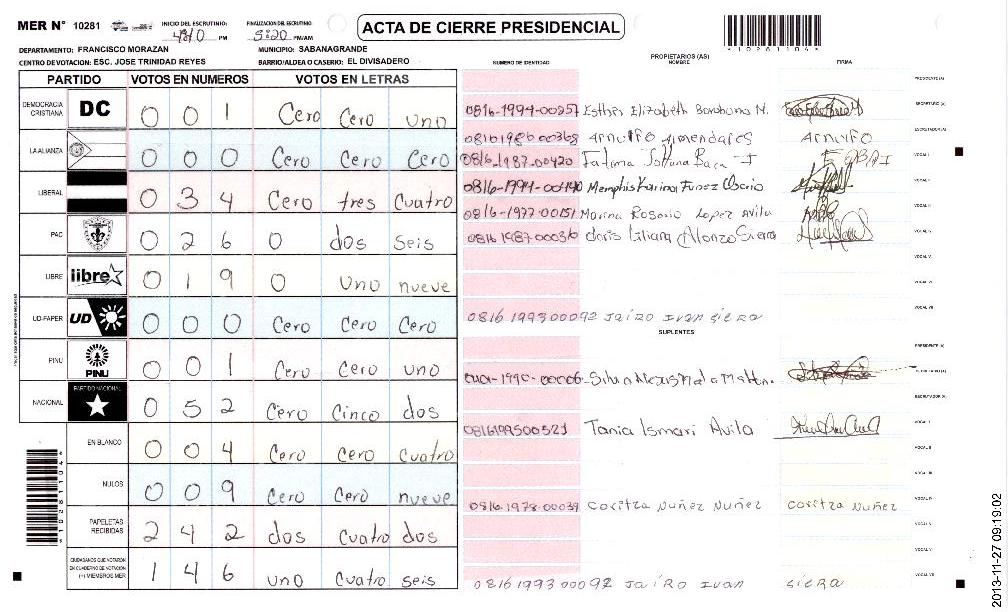 MER N° 10281 INICIO DEL ESCRUTINIO: 4:10 PM FINALIZACION DEL ESCRUTINIO 5:20 PM/AM ACTA DE CIERRE PRESIDENCIAL
DEPARTAMENTO: FRANCISCO MORAZAN MUNICIPIO: SABANAGRANDE
CENTRO DE VOTACION: ESC. JOSE TRINIDAD REYES BARRIO/ALDEA O CASERIO: EL DIVISADERO
PARTIDO VOTOS EN NUMEROS VOTOS EN LETRAS
DEMOCRACIA CRISTIANA DC 0 0 1 Cero Cero uno
LA ALIANZA 0 0 0 Cero Cero Cero
LIBERAL 0 3 4 Cero tres Cuatro
PAC 0 2 6 0 dos seis
LIBRE libre 0 1 9 0 uno nueve
UD-FAPER UD 0 0 0 Cero Cero Cero
PINU PINU 0 0 1 Cero Cero uno
NACIONAL PARTIDO NACIONAL 0 5 2 Cero Cinco dos
EN BLANCO 0 0 4 Cero Cero Cuatro
NULOS 0 0 9 Cero Cero nueve
PAPELETAS RECIBIDAS 2 4 2 dos Cuatro dos
CIUDADANOS QUE VOTARON EN CUADERNO DE VOTACION (+) MIEMBROS MER 1 4 6 uno Cuatro seis
NUMERO DE IDENTIDAD PROPIETARIOS (AS) NOMBRE FIRMA
PRESIDENTE (A)
0816-1994-00257 Esther Elizabeth M. SECRETARIO (A)
0816198600368 Arnulfo Armendares Arnulfo ESCRUTADOR (A)
0816-1987-00420 Fatima Baca VOCAL I
0816-1994-00140 Memphis Karina Funez VOCAL II
0816-1977-00151 Marina Rosario Lopez Avila VOCAL III
0816198700036 doris Liliana Alonzo Sierra VOCAL IV
VOCAL V
VOCAL VI
0816 1993 00092 Jairo Ivan siera VOCAL VII
SUPLENTES
PRESIDENTE (A)
1990-00006 SECRETARIO (A)
ESCRUTADOR (A)
0816199500521 Tania Ismari Avila VOCAL I
VOCAL II
VOCAL III
0816-1978-00039 Coritza Nuñez Nuñez Coritza Nuñez VOCAL IV
VOCAL V
VOCAL VI
0816 1993 00092 Jairo Ivan siera VOCAL VII
*10281104*
*10281104*
2013-11-27 09:19:02